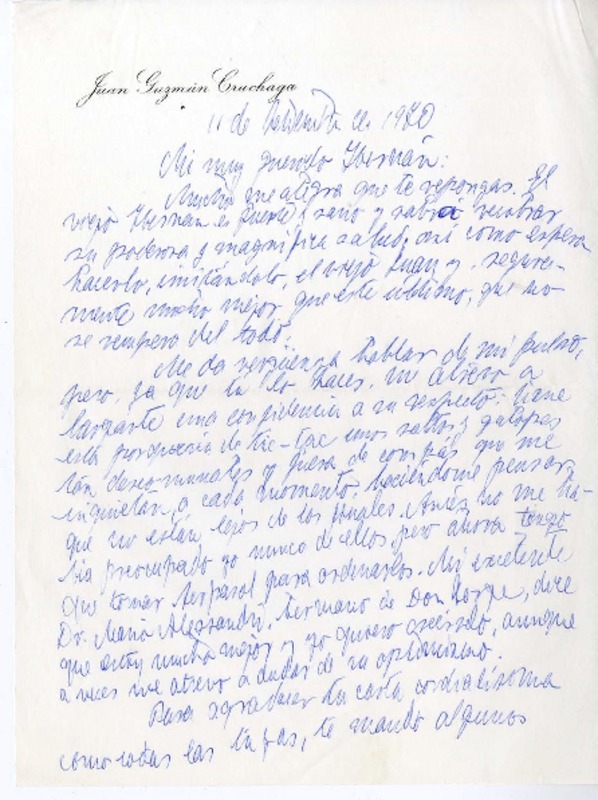 Juan Guzmán Cruchaga
11 de Setiembre de 1970
Mi muy querido Ibernán:
Mucho me alegra que te repongas. El
viejo Ibernán es fuerte y sano y sabrá recobrar
su poderosa y magnífica salud, así como espera
hacerlo, imitándolo, el viejo Juan y, segura-
mente mucho mejor que este último, que no
se recupera del todo.
Me da vergüenza hablar de mi pulso,
pero, ya que tú lo haces, me atrevo a
largarte una confidencia a su respecto: tiene
esta producción de tic-tac unos saltos y galopes
tan descomunales y fuera de compás que me
inquietan, a cada momento, haciéndome pensar
que no están lejos de los finales. Antes no me ha-
bía preocupado yo nunca de ellos, pero ahora tengo
que tomar para ordenarlos. Mi excelente
Dr. Mario Alessandri, hermano de Don Jorge, dice
que estoy mucho mejor y yo quiero creerlo, aunque
a veces me atrevo a dudar de su optimismo.
Para agradecer tu carta cordialísima
como todas las tuyas, te mando algunos